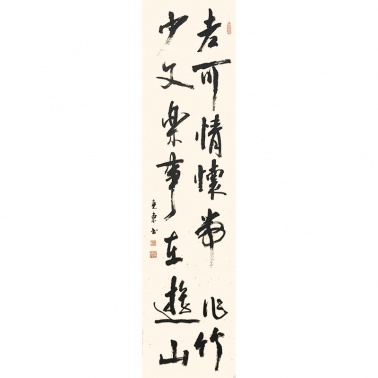 老可情懷常作竹
少文樂事在遊山